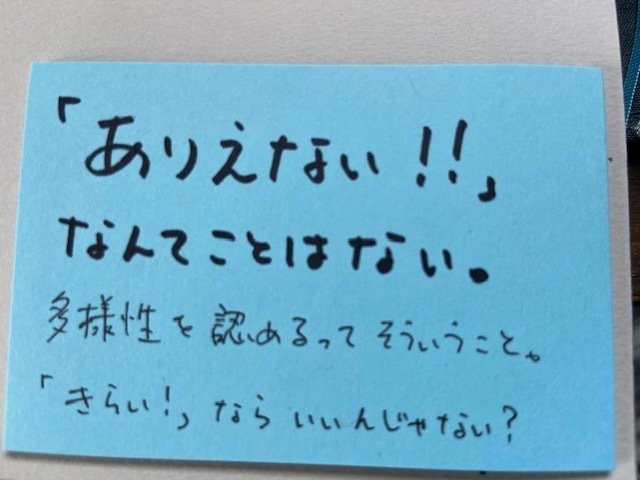 「ありえない!!」
なんてことはない。
多様性を認めるってそういうこと。
「きらい!」ならいいんじゃない?